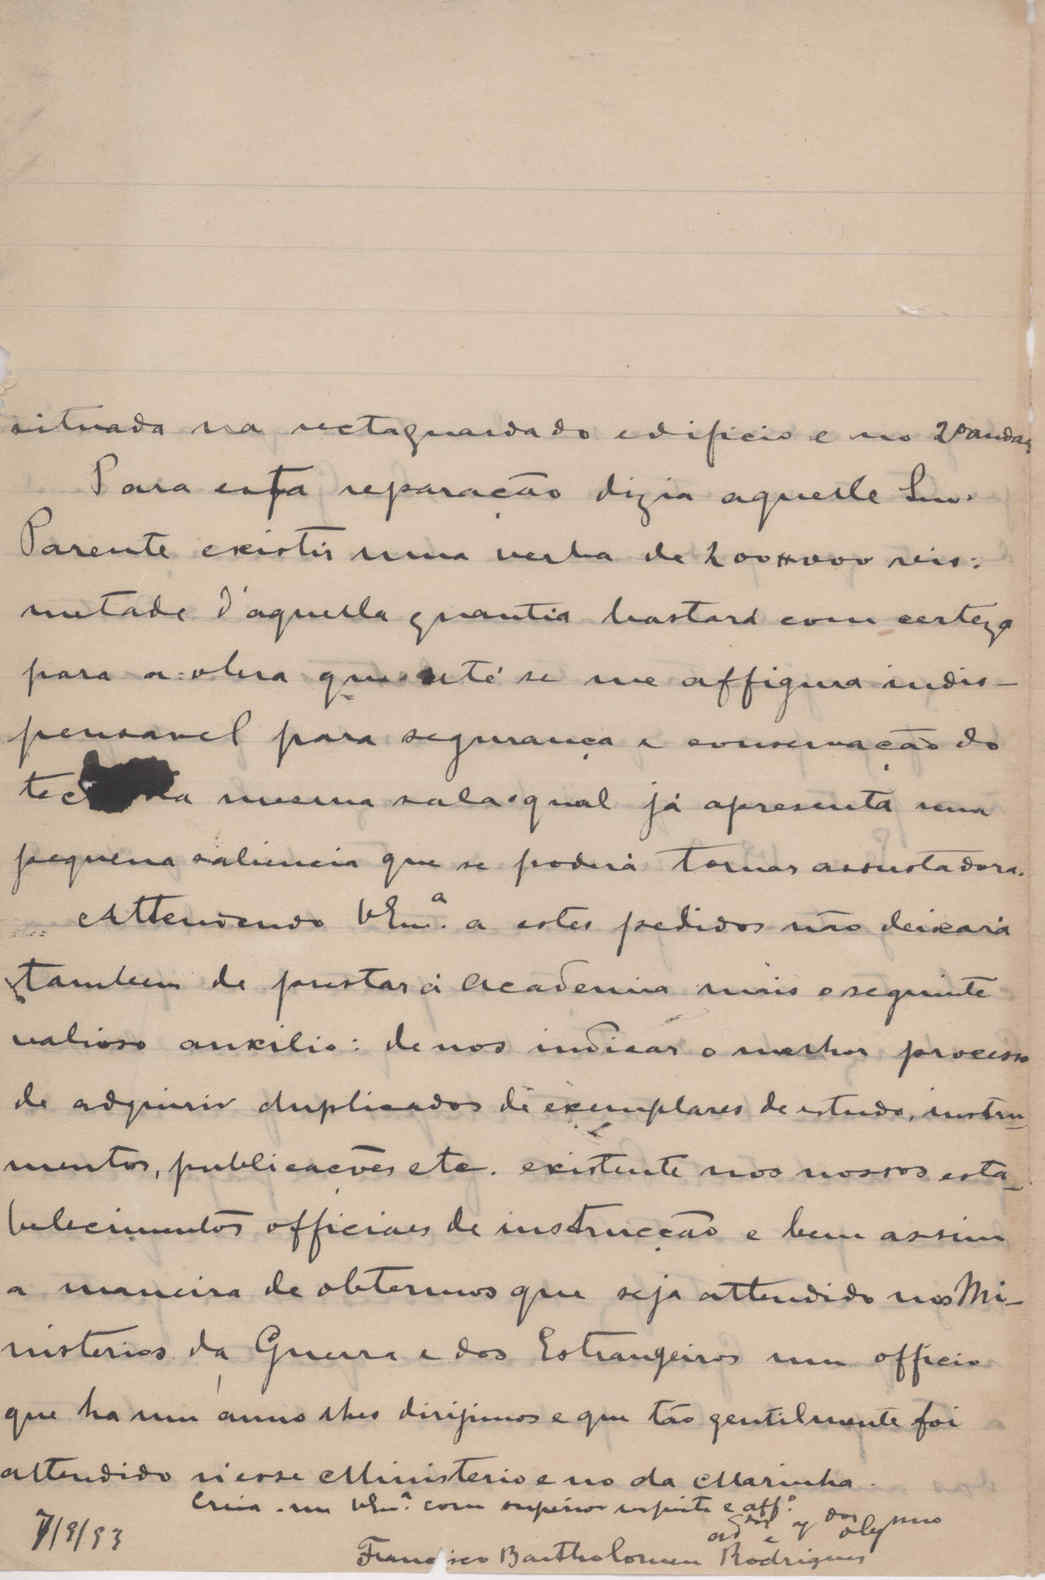 situada na rectaguarda do edificio e no 2º andar
Para esta reparação dizia aquelle Snr.
Parente existir uma verba de 200#000 reis:
metade d'aquella quantia bastará com certeza
para a obra que até se me affigura indis-
pensavel para segurança e conservação do
tec da mesma sala o qual já apresenta uma
pequena saliencia que se poderá tornar assustadora.
Attendendo VExª a estes pedidos não deixará
tambem de prestar á Academia mais o seguinte
valioso auxilio: de nos indicar o melhor processo
de adquirir duplicados de exemplares de estudo, instru-
mentos, publicações etc. existente nos nossos esta-
belecimentos officiaes de instrucção e bem assim
a maneira de obtermos que seja attendido nos Mi-
nisterios da Guerra e dos Estrangeiros um officio
que ha um anno lhes dirijimos e que tão gentilmente foi
attendido n'esse Ministerio e no da Marinha.
Creia-me VExª com superior respeito e affº
7/9/93
Francisco Bartholomeu Rodrigues